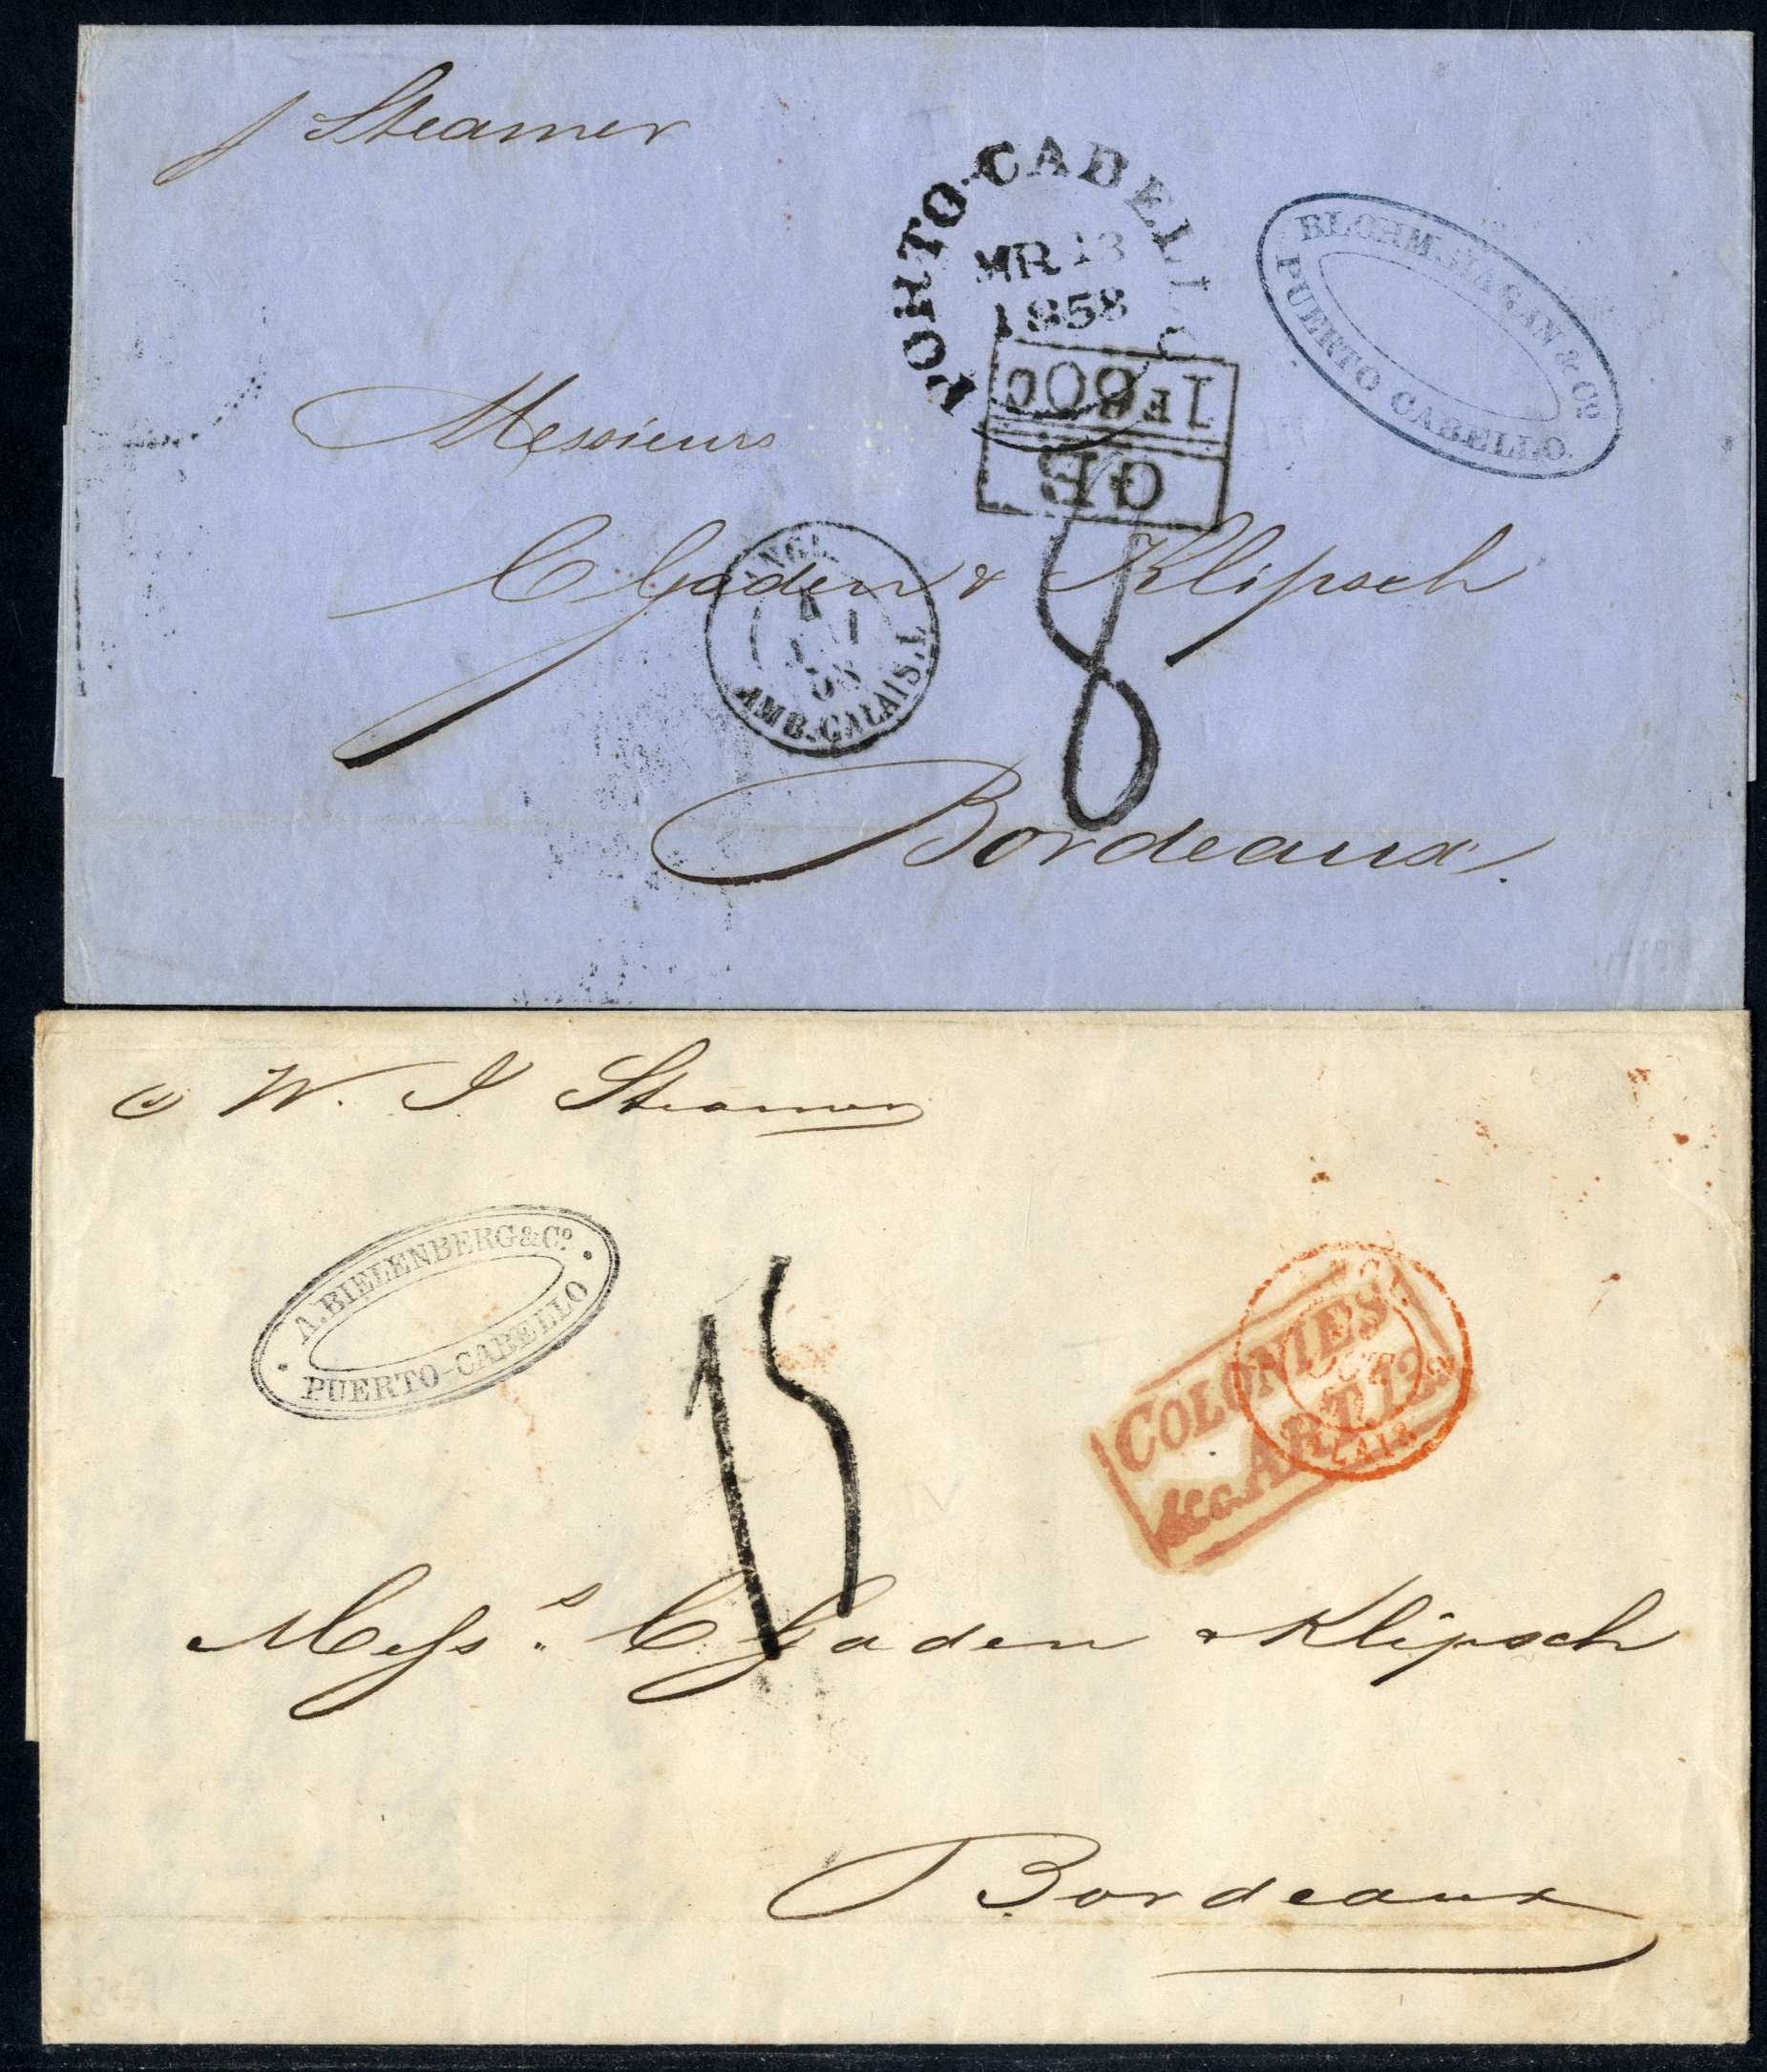 p Steamer
PORTO-CABELLO
MR 13
1858
BLOHM. HAGAN & Cº
PUERTO CABELLO.
GB
1F60C
Messieurs
C Gaden & Klipsch
ANGL.
AMB. CALAIS. I.
8
Bordeaux.
W. I Steamer
A. BIELENBERG & Cº.
PUERTO-CABELLO
15
COLONIES
&c. ART. 12
OCT
CALAIS
Messrs. C. Gaden & Klipsch
Bordeaux